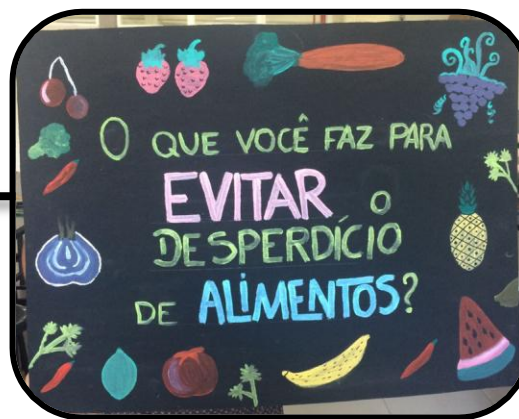 O QUE VOCÊ FAZ PARA
EVITAR O
DESPERDÍCIO
DE ALIMENTOS?